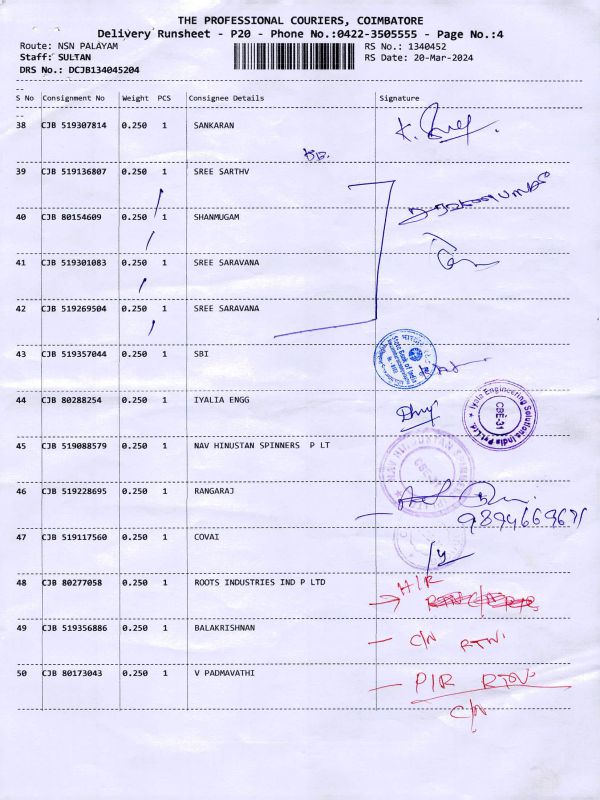 THE PROFESSIONAL COURIERS, COIMBATORE
Delivery Runsheet - P20 - Phone No.:0422-3505555 - Page No.:4
Route: NSN PALAYAM RS No.: 1340452
Staff: SULTAN RS Date: 20-Mar-2024
DRS No.: DCJB134045204
--
S No Consignment No Weight PCS Consignee Details Signature
--
38 CJB 519307814 0.250 1 SANKARAN
39 CJB 519136807 0.250 1 SREE SARTHV
40 CJB 80154609 0.250 1 SHANMUGAM
41 CJB 519301083 0.250 1 SREE SARAVANA
42 CJB 519269504 0.250 1 SREE SARAVANA
43 CJB 519357044 0.250 1 SBI
State Bank of India
44 CJB 80288254 0.250 1 IYALIA ENGG
Iyalia Engineering Solutions India Pvt Ltd.
CBE-31
45 CJB 519088579 0.250 1 NAV HINUSTAN SPINNERS P LT
NAV HINDUSTAN
46 CJB 519228695 0.250 1 RANGARAJ
9894669671
47 CJB 519117560 0.250 1 COVAI
48 CJB 80277058 0.250 1 ROOTS INDUSTRIES IND P LTD
H/R
49 CJB 519356886 0.250 1 BALAKRISHNAN
C/N RTN.
50 CJB 80173043 0.250 1 V PADMAVATHI
P/R RTN.
C/N